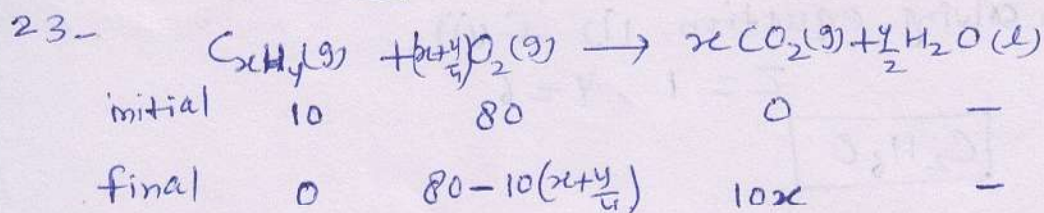 23- CxHy(g) + (x+y/4)O2(g) → xCO2(g) + y/2 H2O(l)
initial 10 80 0 -
final 0 80-10(x+y/4) 10x -